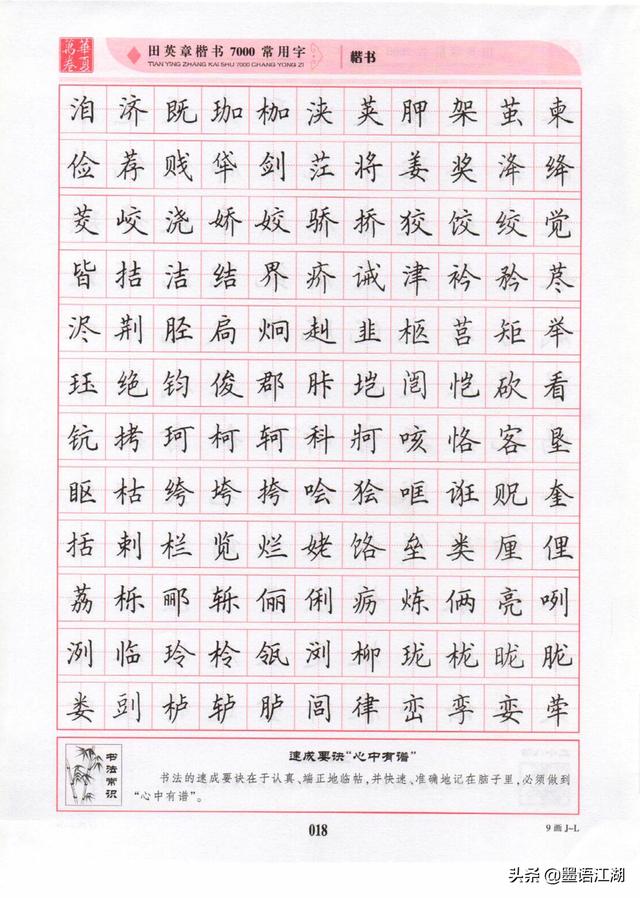 華夏
萬卷
田英章楷书7000常用字
TIAN YING ZHANG KAI SHU 7000 CHANG YONG ZI
楷书
洎 济 既 珈 枷 浃 荚 胛 架 茧 柬
俭 荐 贱 牮 剑 茳 将 姜 奖 洚 绛
茭 峧 浇 娇 姣 骄 挢 狡 饺 绞 觉
皆 拮 洁 结 界 疥 诫 津 衿 矜 荩
浕 荆 胫 扃 炯 赳 韭 柩 莒 矩 举
珏 绝 钧 俊 郡 胩 垲 闿 恺 砍 看
钪 拷 珂 柯 轲 科 牁 咳 恪 客 垦
眍 枯 绔 垮 挎 哙 狯 哐 诓 贶 奎
括 剌 栏 览 烂 姥 饹 垒 类 厘 俚
荔 栎 郦 轹 俪 俐 疬 炼 俩 亮 咧
洌 临 玲 柃 瓴 浏 柳 珑 栊 昽 胧
娄 剅 栌 轳 胪 闾 律 峦 孪 娈 荦
书法常识
速成要诀“心中有谱”
书法的速成要诀在于认真、端正地临帖,并快速、准确地记在脑子里,必须做到
“心中有谱”。
018
9画 J-L
头条 @墨语江湖